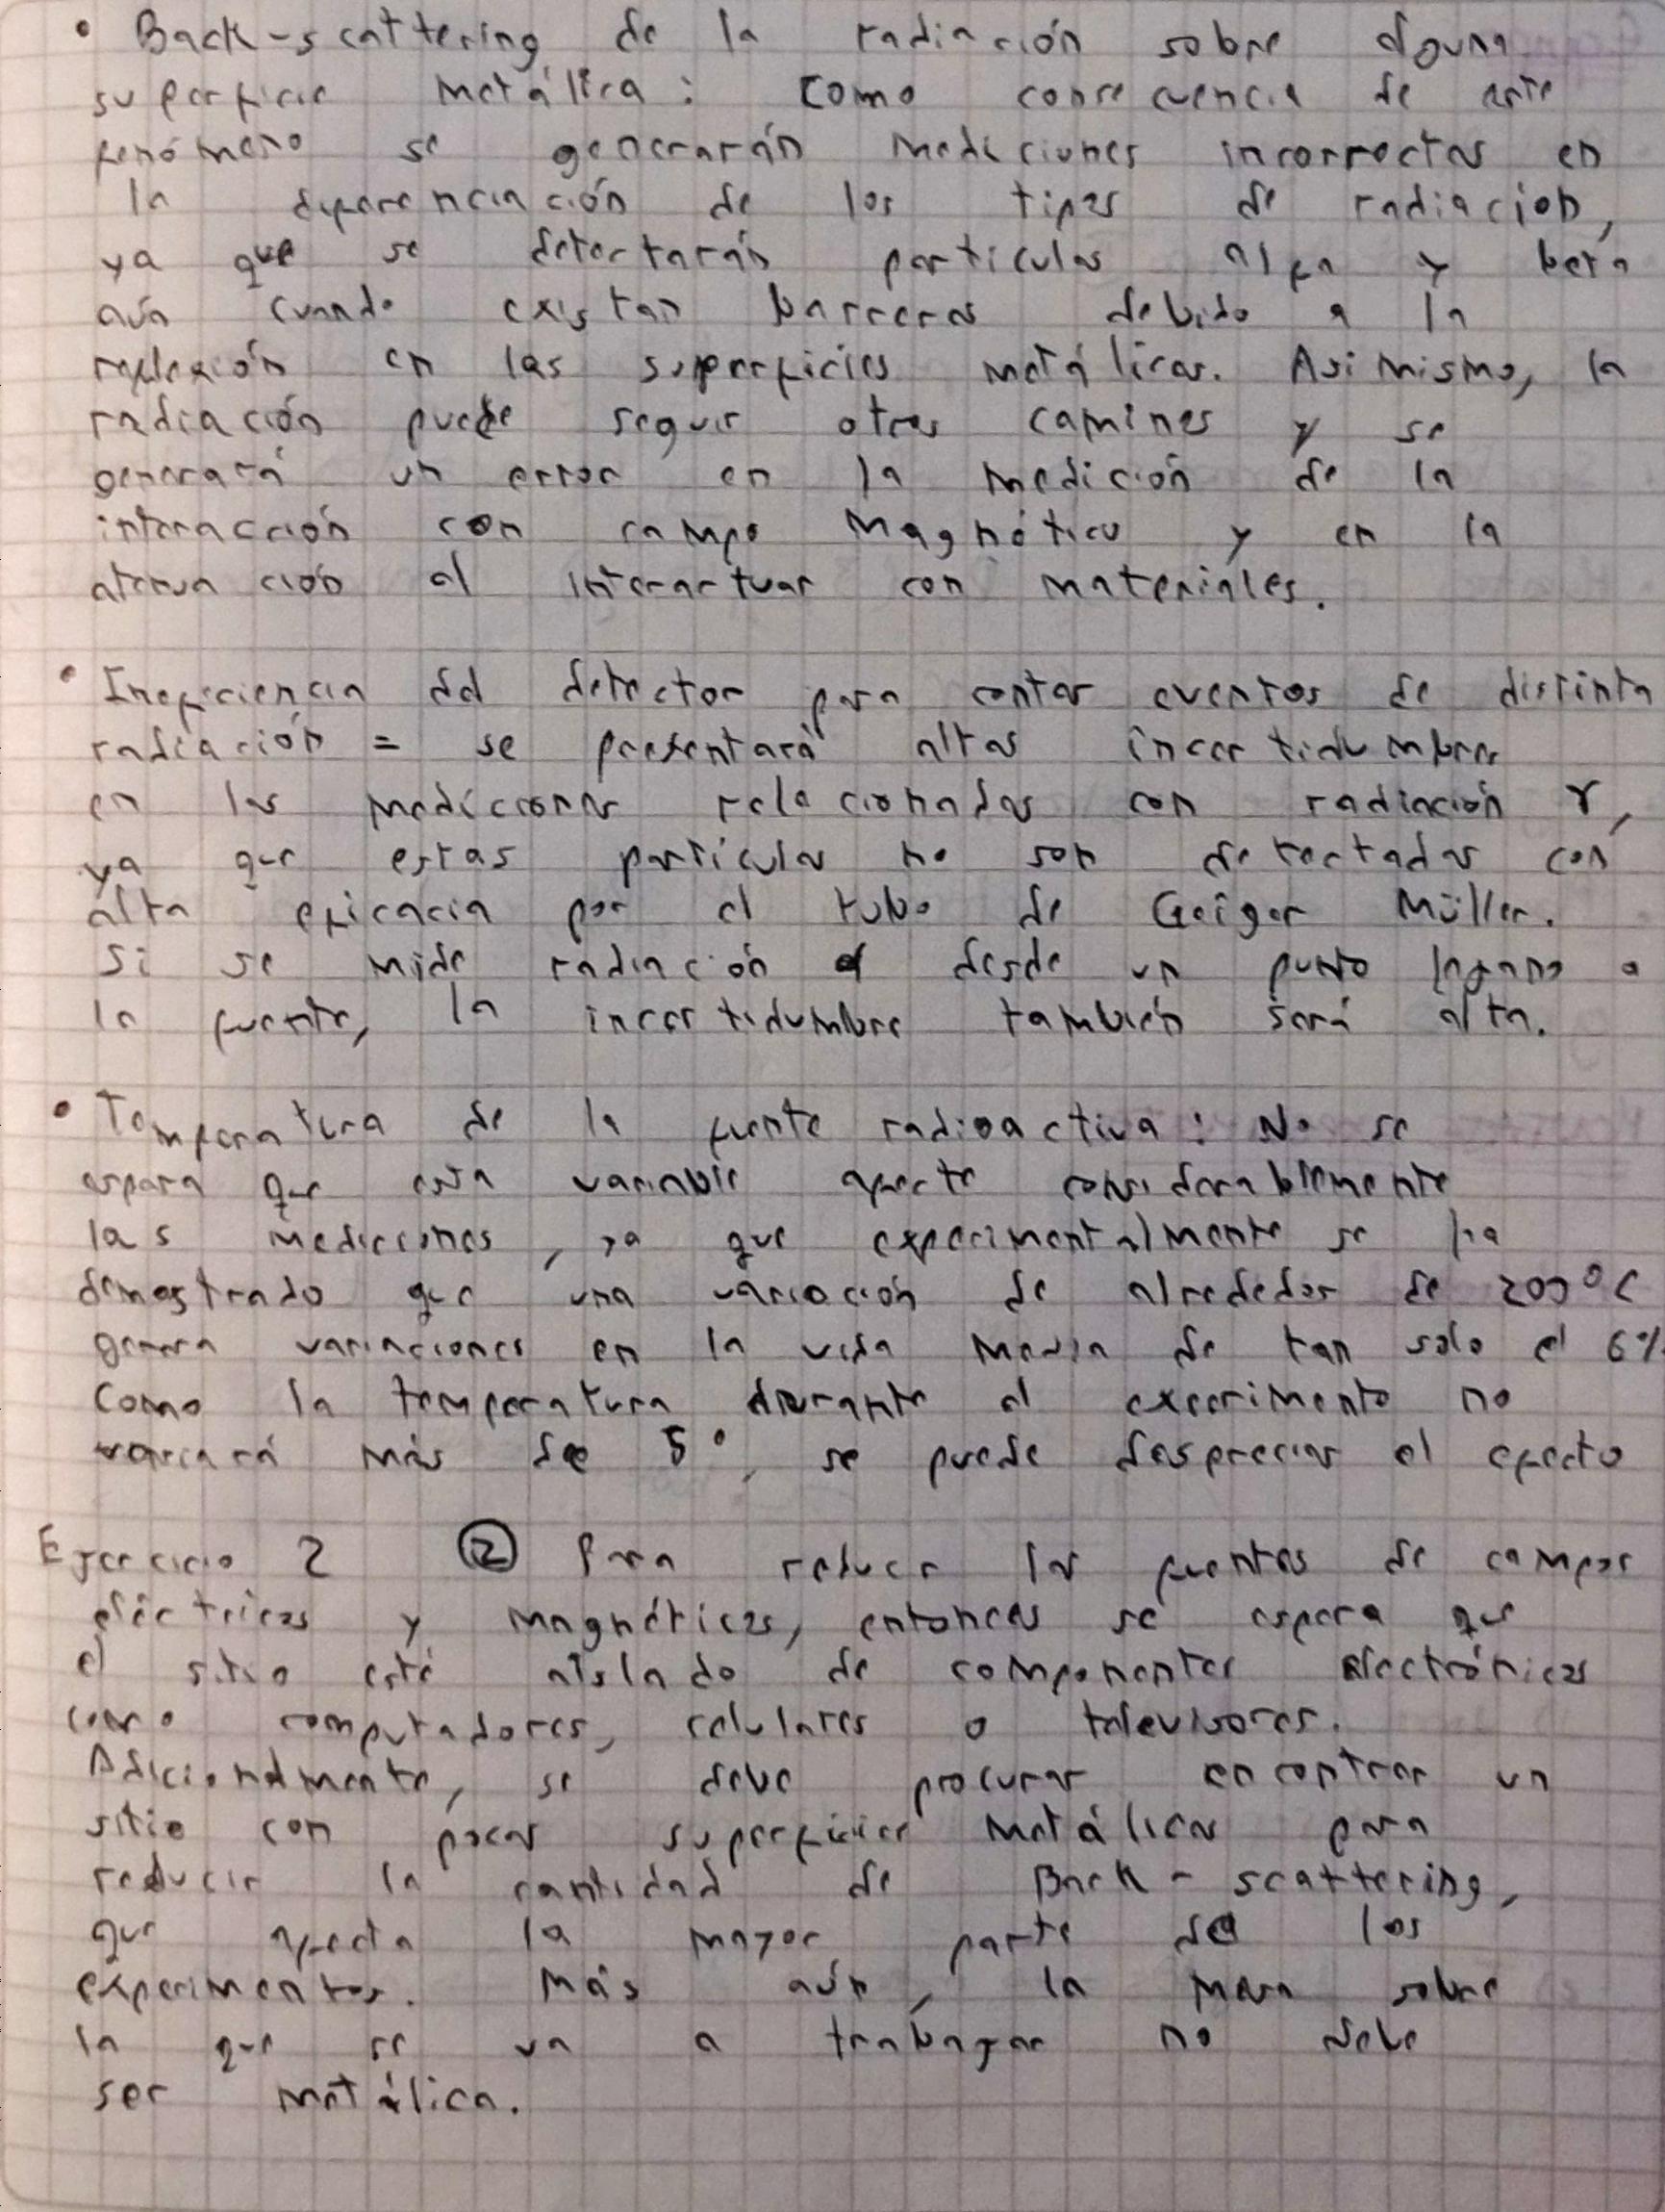 • Back-scattering de la radiación sobre alguna
superficie metálica: como consecuencia de este
fenómeno se generarán mediciones incorrectas en
la diferenciación de los tipos de radiación,
ya que se detectarán partículas alfa y beta
aún cuando existan barreras debido a la
reflexión en las superficies metálicas. Asimismo, la
radiación puede seguir otros caminos y se
generará un error en la medición de la
interacción con campo magnético y en la
atenuación al interactuar con materiales.
• Ineficiencia del detector para contar eventos de distinta
radiación = se presentará altas incertidumbres
en las mediciones relacionadas con radiación γ,
ya que estas partículas no son detectadas con
alta eficacia por el tubo de Geiger Müller.
Si se mide radiación α desde un punto lejano a
la fuente, la incertidumbre también será alta.
• Temperatura de la fuente radioactiva: No se
espera que esta variable afecte considerablemente
las mediciones, ya que experimentalmente se ha
demostrado que una variación de alrededor de 200°C
genera variaciones en la vida media de tan solo el 6%
Como la temperatura durante el experimento no
variará más de 5°, se puede despreciar el efecto
Ejercicio 2 ② Para reducir las fuentes de campos
eléctricos y magnéticos, entonces se espera que
el sitio esté aislado de componentes electrónicos
como computadores, celulares o televisores.
Adicionalmente, se debe procurar encontrar un
sitio con pocas superficies metálicas para
reducir la cantidad de Back-scattering,
que afecta la mayor parte de los
experimentos. Más aún, la mesa sobre
la que se va a trabajar no debe
ser metálica.